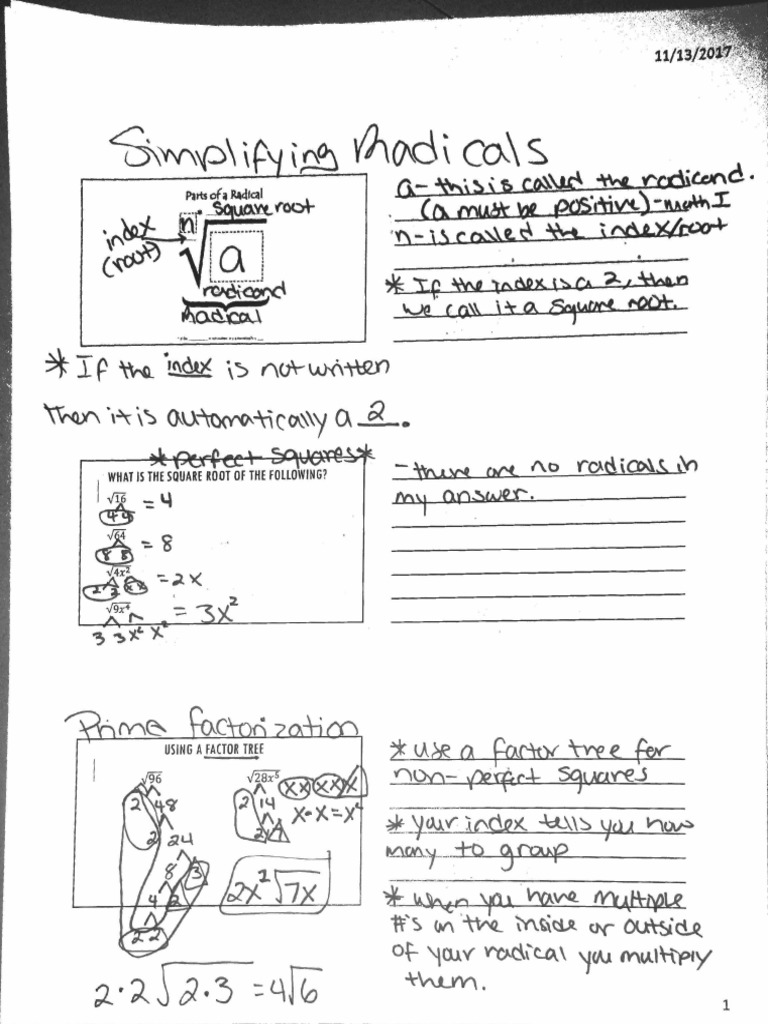 11/13/2017
Simplifying Radicals
Parts of a Radical
square root
index
(root)
n
a
radicand
Radical
a - this is called the radicand.
(a must be positive) - Math I
n - is called the index/root
* If the index is a 2, then
we call it a square root.
* If the index is not written
Then it is automatically a 2.
*perfect squares*
WHAT IS THE SQUARE ROOT OF THE FOLLOWING?
√16 = 4
4 4
√64 = 8
8 8
√4x² = 2x
2 2 x x
√9x⁴ = 3x²
3 3 x² x²
- there are no radicals in
my answer.
Prime factorization
USING A FACTOR TREE
√96
2 48
2 24
8 3
4 2
2 2
2·2√2·3 = 4√6
√28x⁵
xx xx x
2 14
x·x=x²
2 7
2x²√7x
* use a factor tree for
non-perfect squares
* your index tells you how
many to group
* when you have multiple
#'s on the inside or outside
of your radical you multiply
them.
1